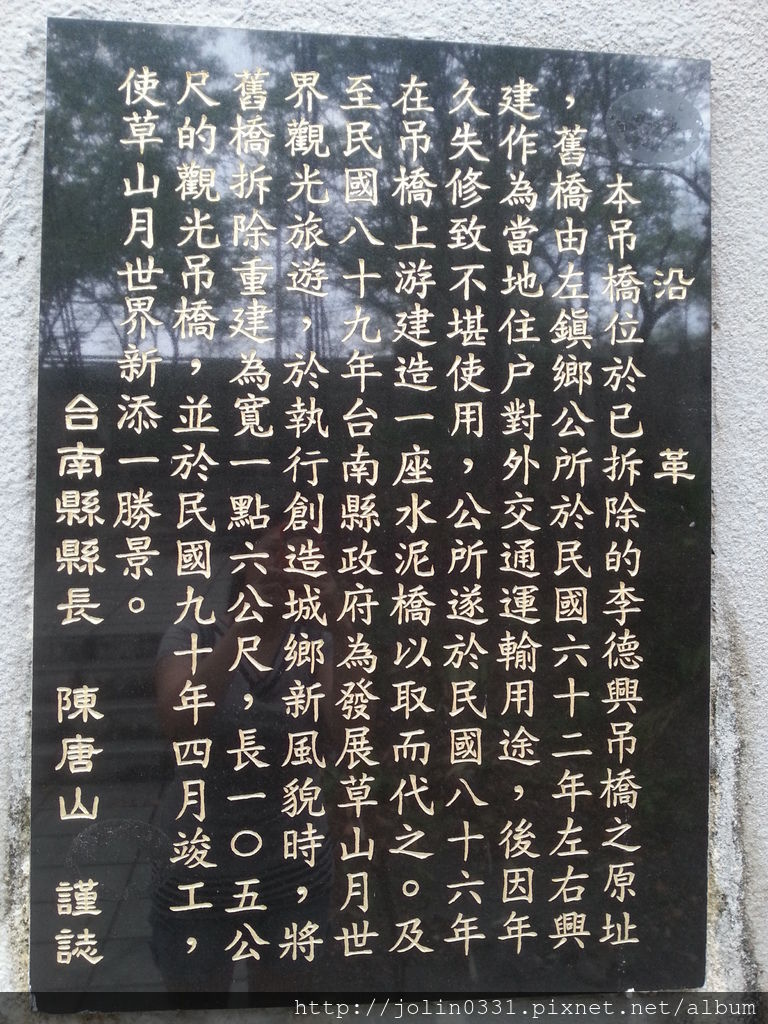 沿革
本吊橋位於已拆除的李德興吊橋之原址
，舊橋由左鎮鄉公所於民國六十二年左右興
建作為當地住户對外交通運輸用途，後因年
久失修致不堪使用，公所遂於民國八十六年
在吊橋上游建造一座水泥橋以取而代之。及
至民國八十九年台南縣政府為發展草山月世
界觀光旅遊，於執行創造城鄉新風貌時，將
舊橋拆除重建為寬一點六公尺，長一〇五公
尺的觀光吊橋，並於民國九十年四月竣工，
使草山月世界新添一勝景。
台南縣縣長 陳唐山 謹誌
http://jolin0331.pixnet.net/album